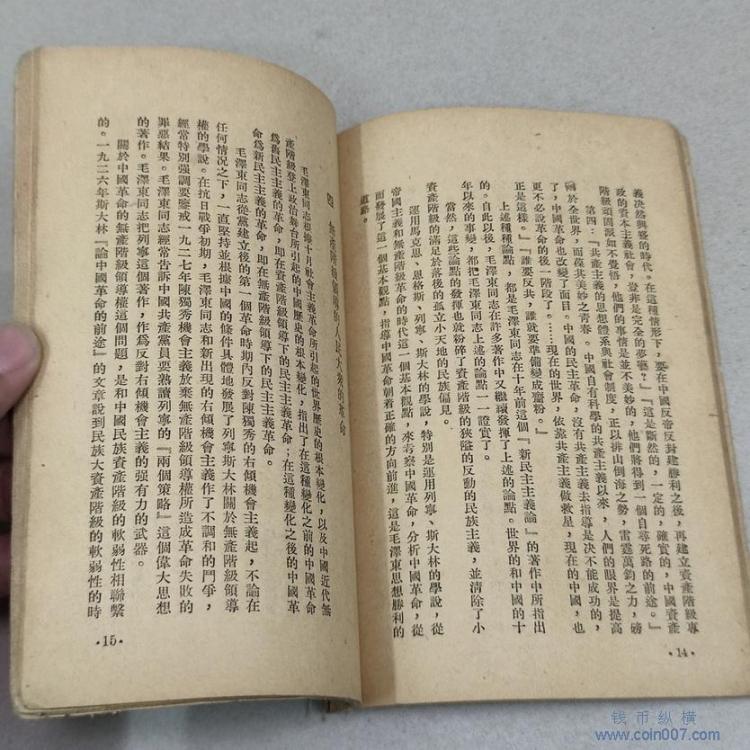 義決然與著的時代。在這種情形下，要在中國反帝反封建勝利之後，再建立資產階級專
政的資本主義社會，豈非是完全的夢囈？』『這是斷然的，一定的，確實的，中國資產
階級頑固派如不覺悟，他們的事情是並不美妙的，他們將得到一個自尋死路的前途。』
第四：『共產主義的思想體系與社會制度，正以排山倒海之勢，雷霆萬鈞之力，磅
礡於全世界，而葆其美妙之青春。中國自有科學的共產主義以來，人們的眼界是提高
了，中國革命也改變了面目。中國的民主革命，沒有共產主義去指導是決不能成功的，
更不必說革命的後一階段了。……現在的世界，依靠共產主義做救星，現在的中國，也
正是這樣。』『誰要反共，誰就要準備變成齏粉。』
上述種種論點，都是毛澤東同志在十年前這個『新民主主義論』的著作中所指出
的。自此以後，毛澤東同志在許多著作中又繼續發揮了上述的論點。世界的和中國的十
年以來的事變，都把毛澤東同志上述的論點一一證實了。
當然，這些論點的發揮也就粉碎了資產階級的狹隘的反動的民族主義，並清除了小
資產階級的滿足於落後的孤立小天地的民族偏見。
運用馬克思、恩格斯、列寧、斯大林的學說，特別是運用列寧、斯大林的學說，從
帝國主義和無產階級革命的時代這一個基本觀點，來考察中國革命，分析中國革命，從
而發展了這一個基本觀點，指導中國革命朝着正確的方向前進，這是毛澤東思想勝利的
道路。
·14·
四 無產階級領導的人民大衆的革命
毛澤東同志根據十月社會主義革命所引起的世界歷史的根本變化，以及中國近代無
產階級登上政治舞台所引起的中國歷史的根本變化，指出了在這種變化之前的中國革命
爲舊民主主義的革命，即在資產階級領導下的民主主義革命；在這種變化之後的中國革
命爲新民主主義的革命，即在無產階級領導下的民主主義革命。
毛澤東同志從黨建立後的第一個革命時期內反對陳獨秀的右傾機會主義起，不論在
任何情況之下，一直堅持並根據中國的條件具體地發展了列寧斯大林關於無產階級領導
權的學說。在抗日戰爭初期，毛澤東同志和新出現的右傾機會主義作了不調和的鬥爭，
經常特別強調要鑒戒一九二七年陳獨秀機會主義放棄無產階級領導權所造成革命失敗的
罪惡結果。毛澤東同志經常告訴中國共產黨員要熟讀列寧的『兩個策略』這個偉大思想
的著作。毛澤東同志把列寧這個著作，作爲反對右傾機會主義的強有力的武器。
關於中國革命的無產階級領導權這個問題，是和中國民族資產階級的軟弱性相聯繫
的。一九二六年斯大林『論中國革命的前途』的文章說到民族大資產階級的軟弱性的時
·15·
钱币纵横
www.coin007.com